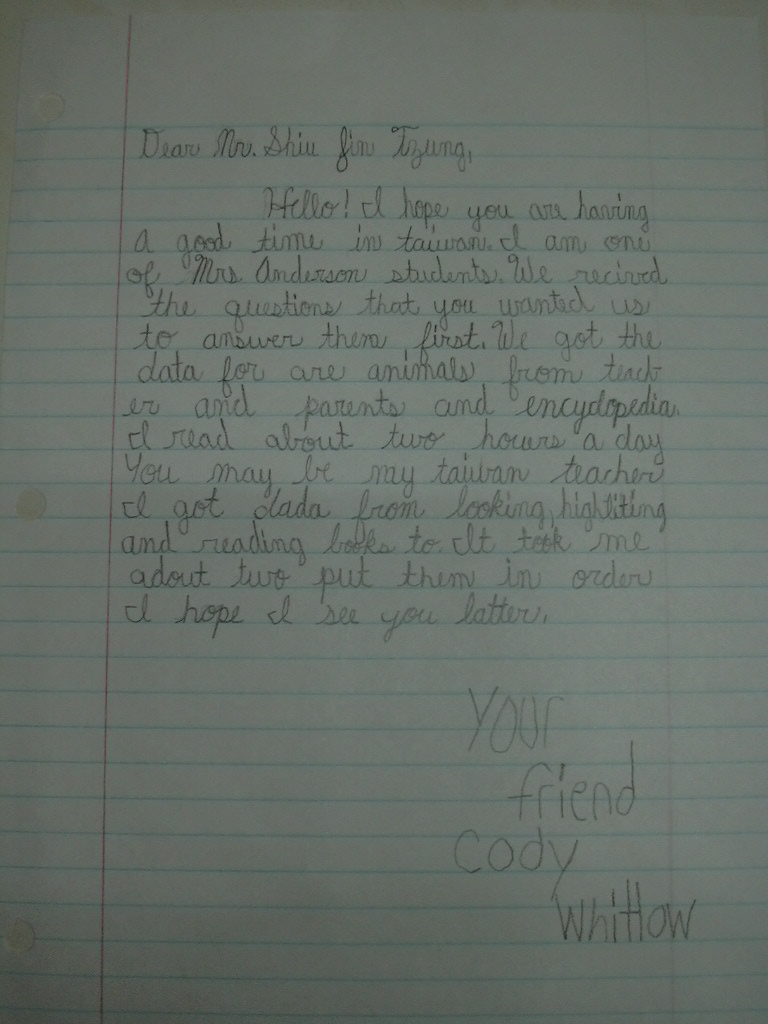 Dear Mr. Shiu Jin Tzung,
Hello! I hope you are having
a good time in taiwan. I am one
of Mrs Anderson students. We recived
the questions that you wanted us
to answer them first. We got the
data for are animals from teach
er and parents and encyclopedia.
I read about two houers a day
You may be my taiwan teacher
I got dada from looking, highliting
and reading books to. It took me
adout two put them in order
I hope I see you latter.
Your
friend
Cody
Whittow